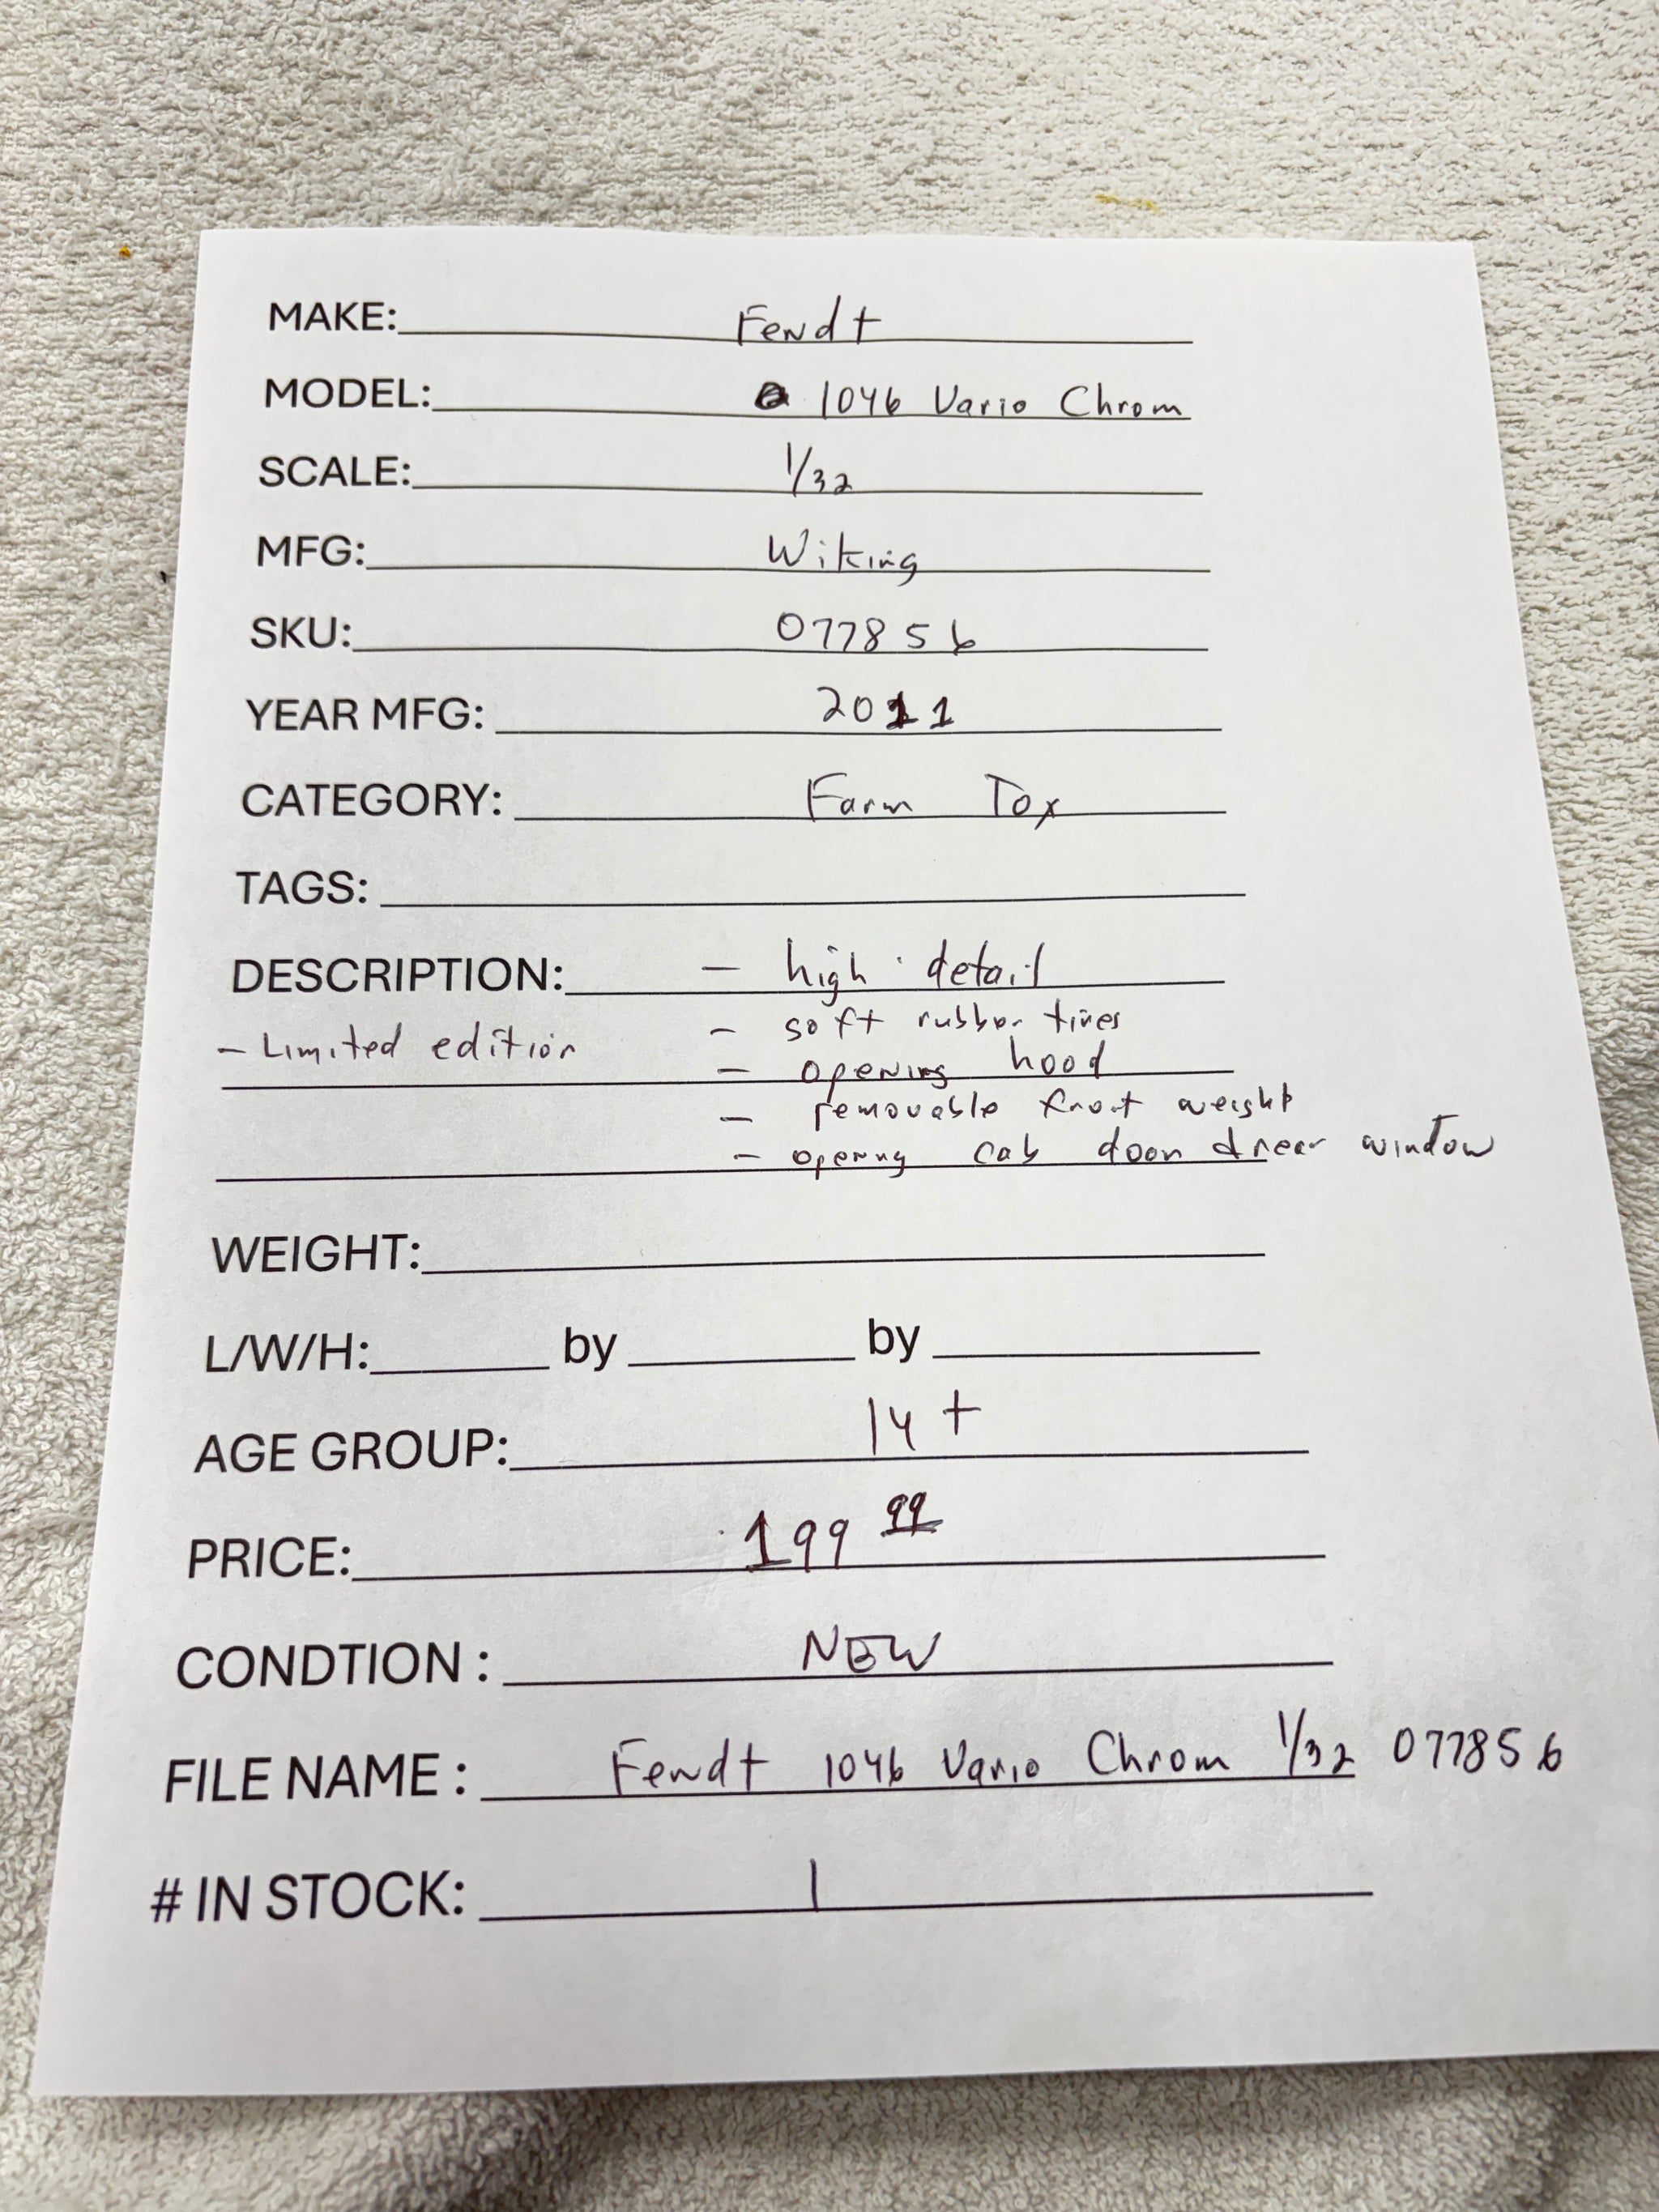 MAKE: Fendt
MODEL: 1046 Vario Chrom
SCALE: 1/32
MFG: Wiking
SKU: 077856
YEAR MFG: 2011
CATEGORY: Farm Toy
TAGS:
DESCRIPTION: - high detail
- Limited edition - soft rubber tires
- opening hood
- removable front weight
- opening cab door & rear window
WEIGHT:
L/W/H: by by
AGE GROUP: 14+
PRICE: 199 99
CONDTION : NEW
FILE NAME : Fendt 1046 Vario Chrom 1/32 077856
# IN STOCK: 1